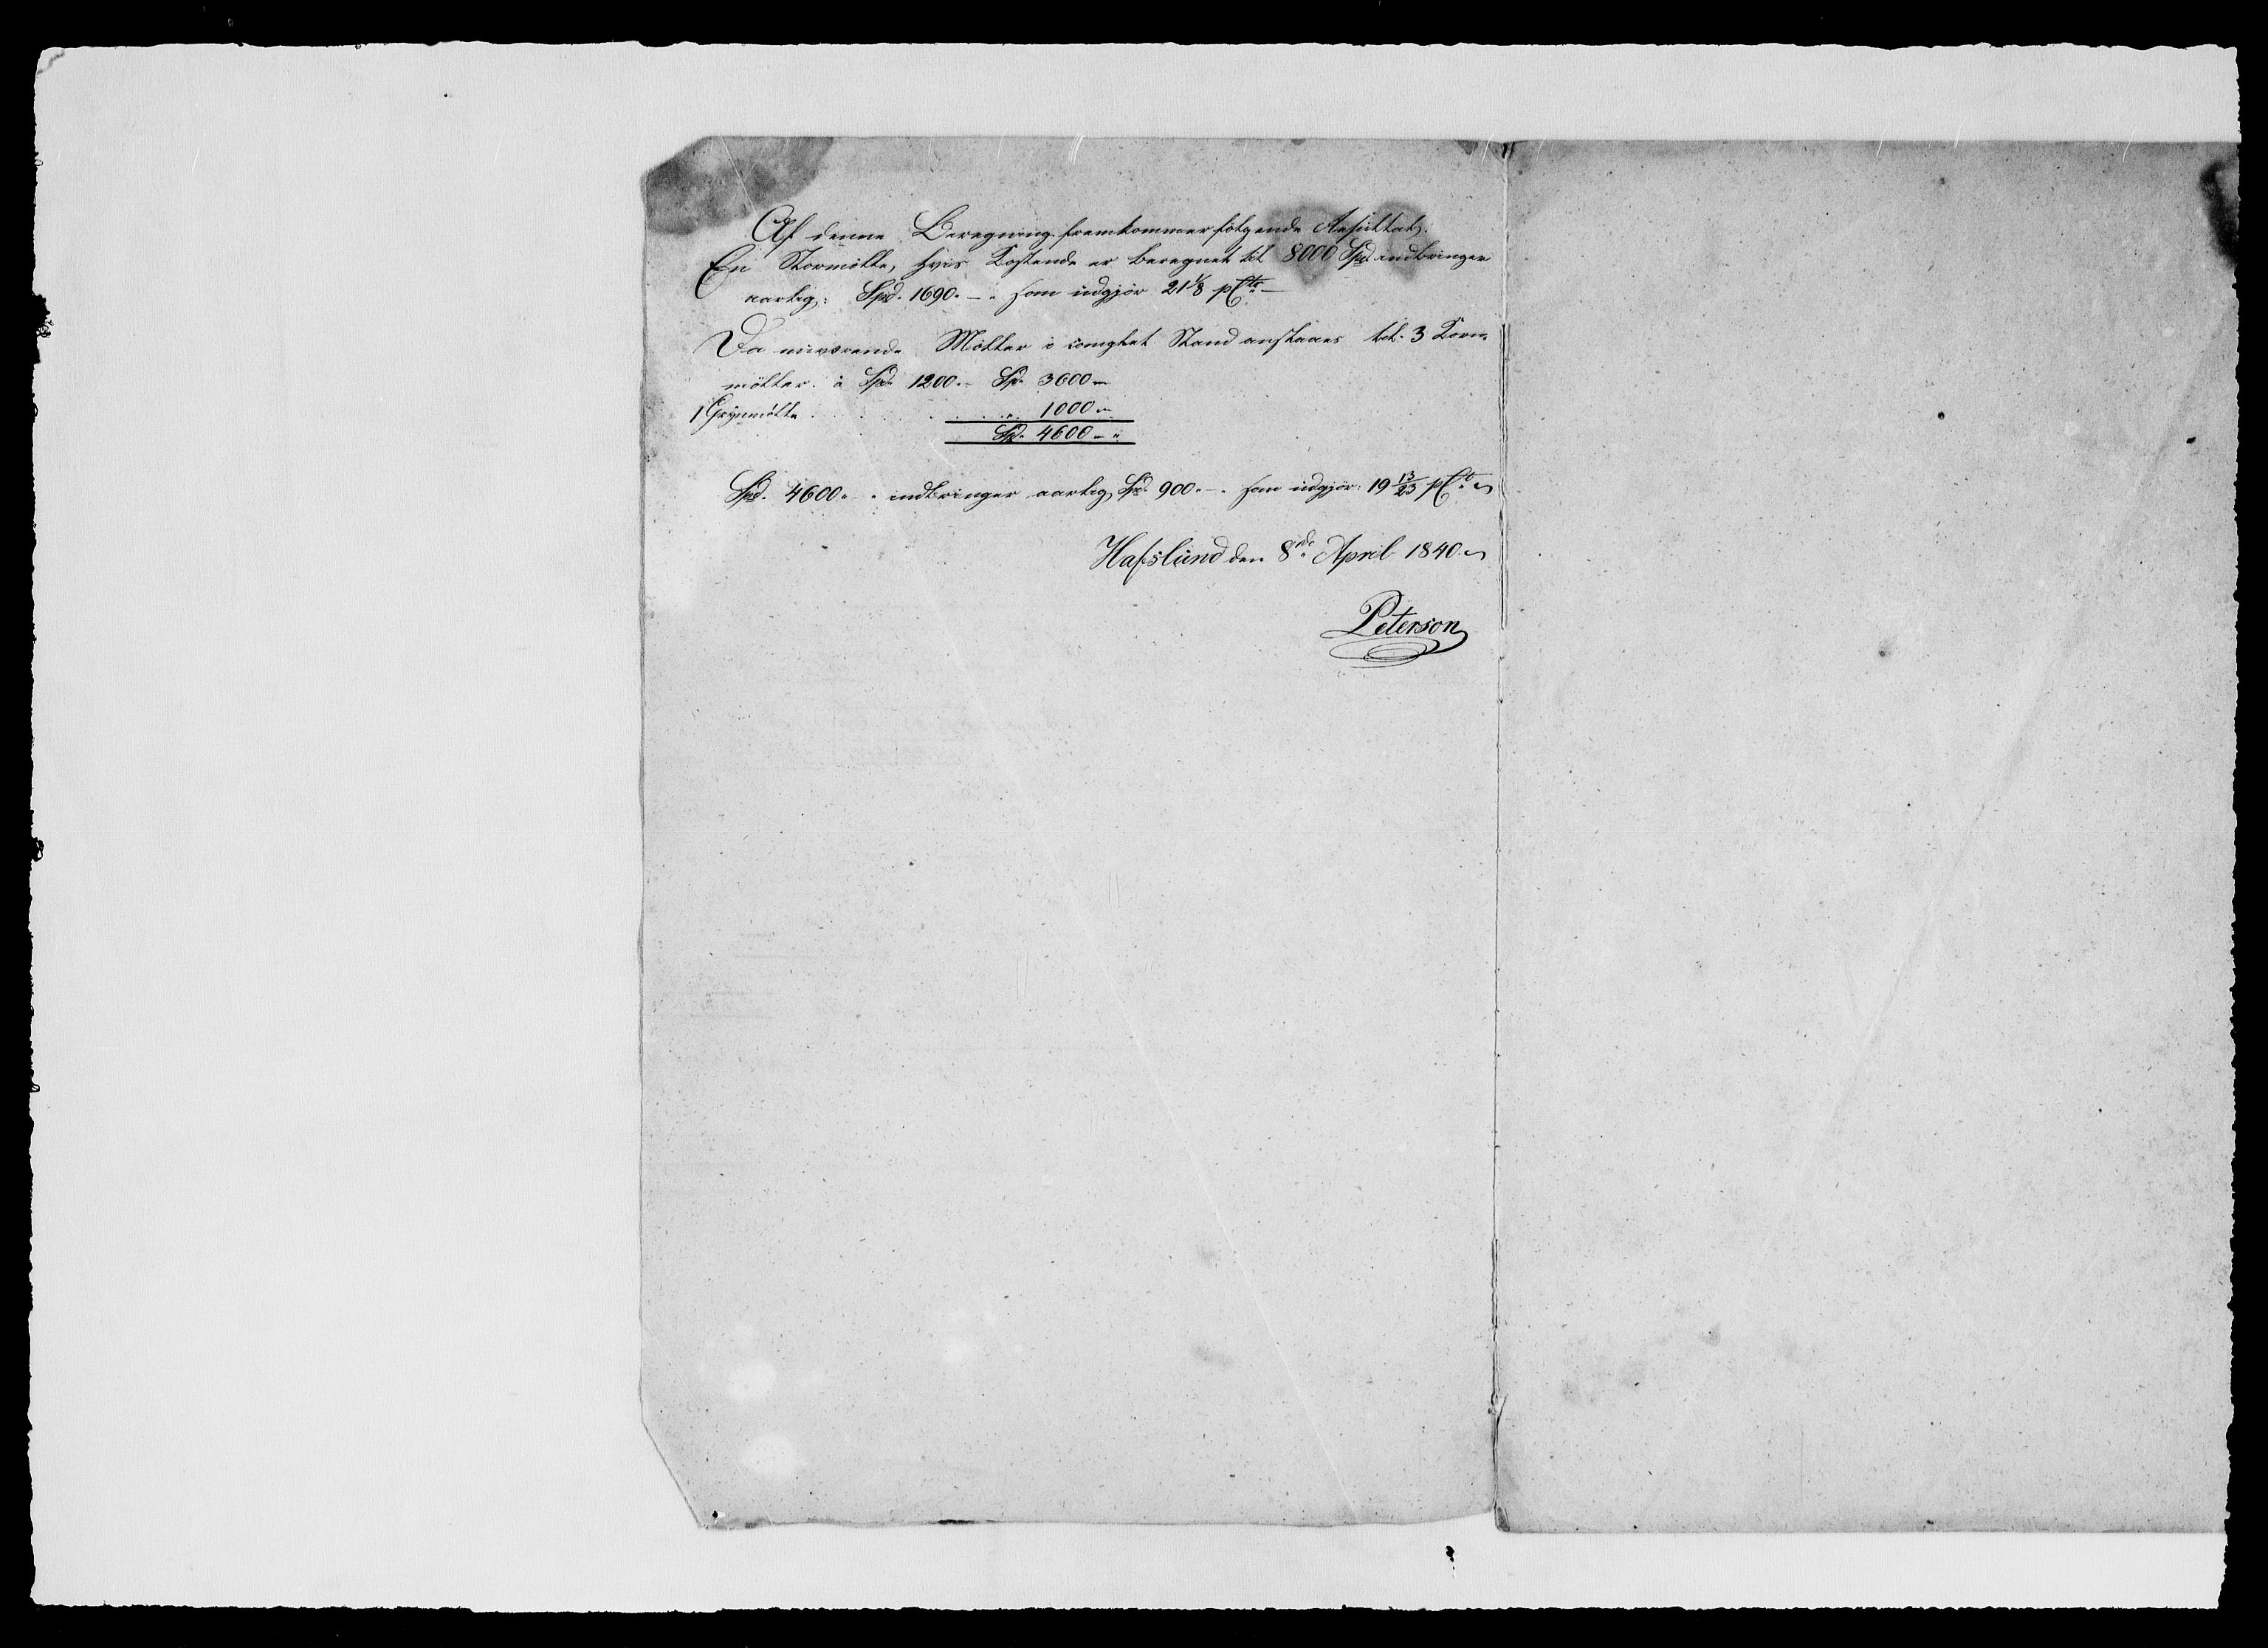 Af denne Beregning fremkommer følgende Resultat:
En Stormölle, hvis Kostende er beregnet til 8000 Spd. indbringer
aarlig: Spd. 1690. – " som udgjör 21 1/8 pCto –
De nuværende Möller i complet Stand anslaaes til: 3 Korn-
möller à Spd. 1200. – Spd. 3600 –
1 Grynmölle . . . . . . " 1000 –
Spd. 4600 – "
Spd. 4600 " – " indbringer aarlig Spd. 900. – . som udgjör: 19 13/23 pCto
Hafslund den 8de April 1840.
Peterson